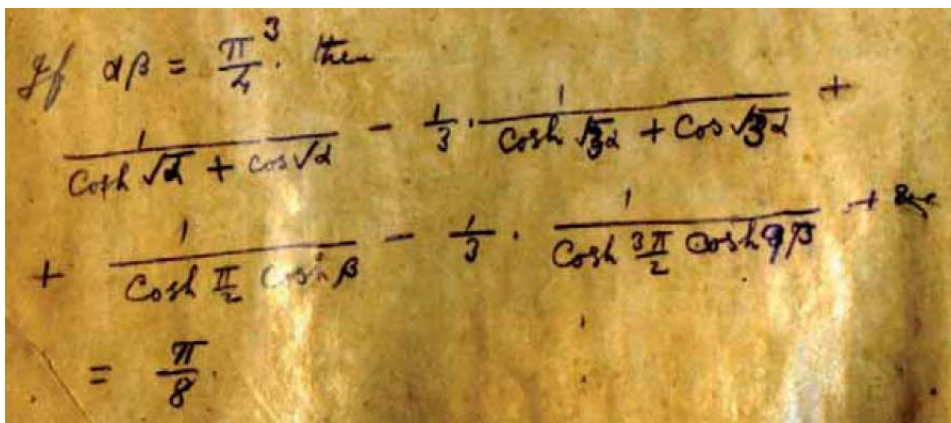 If αβ = π³/4. then
1/(Cosh √α + cos √α) - 1/3 · 1/(Cosh √3α + Cos √3α) +
+ 1/(Cosh π/2 Cosh β) - 1/3 · 1/(Cosh 3π/2 Cosh 9β) + &c
= π/8.